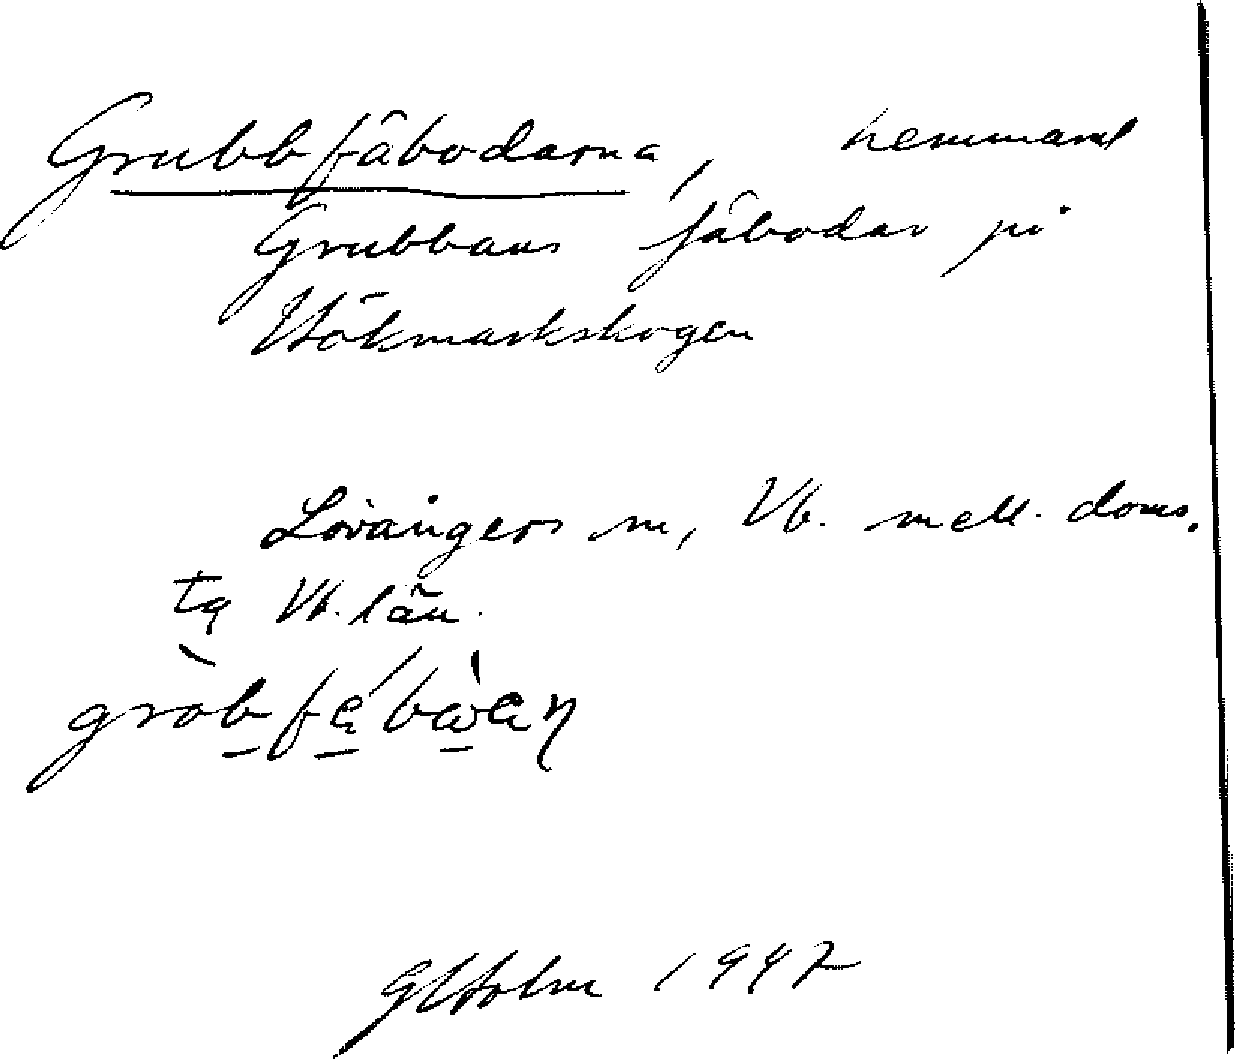 Grubbfäbodarna, hemmanet
Grubbans fäbodar på
Hökmarkskogen
Lövångers sn, Vb. mell. doms.
tg Vb. län.
GHolm 1947